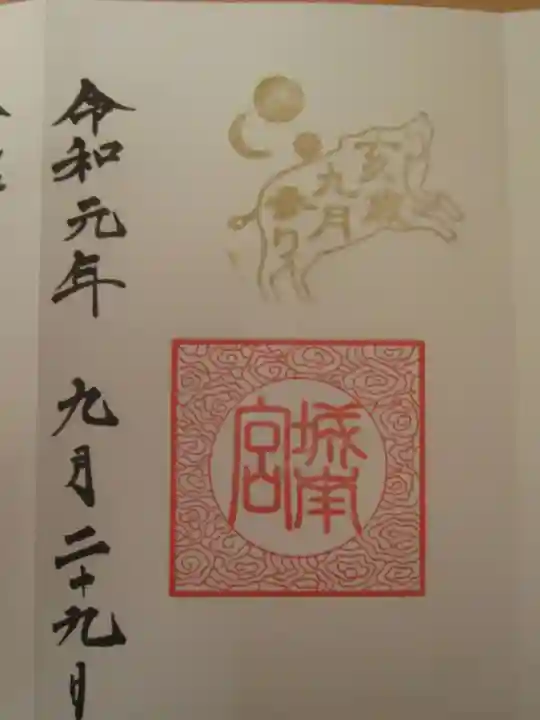 亥歳
九月
城南
宮
令和元年 九月二十九日